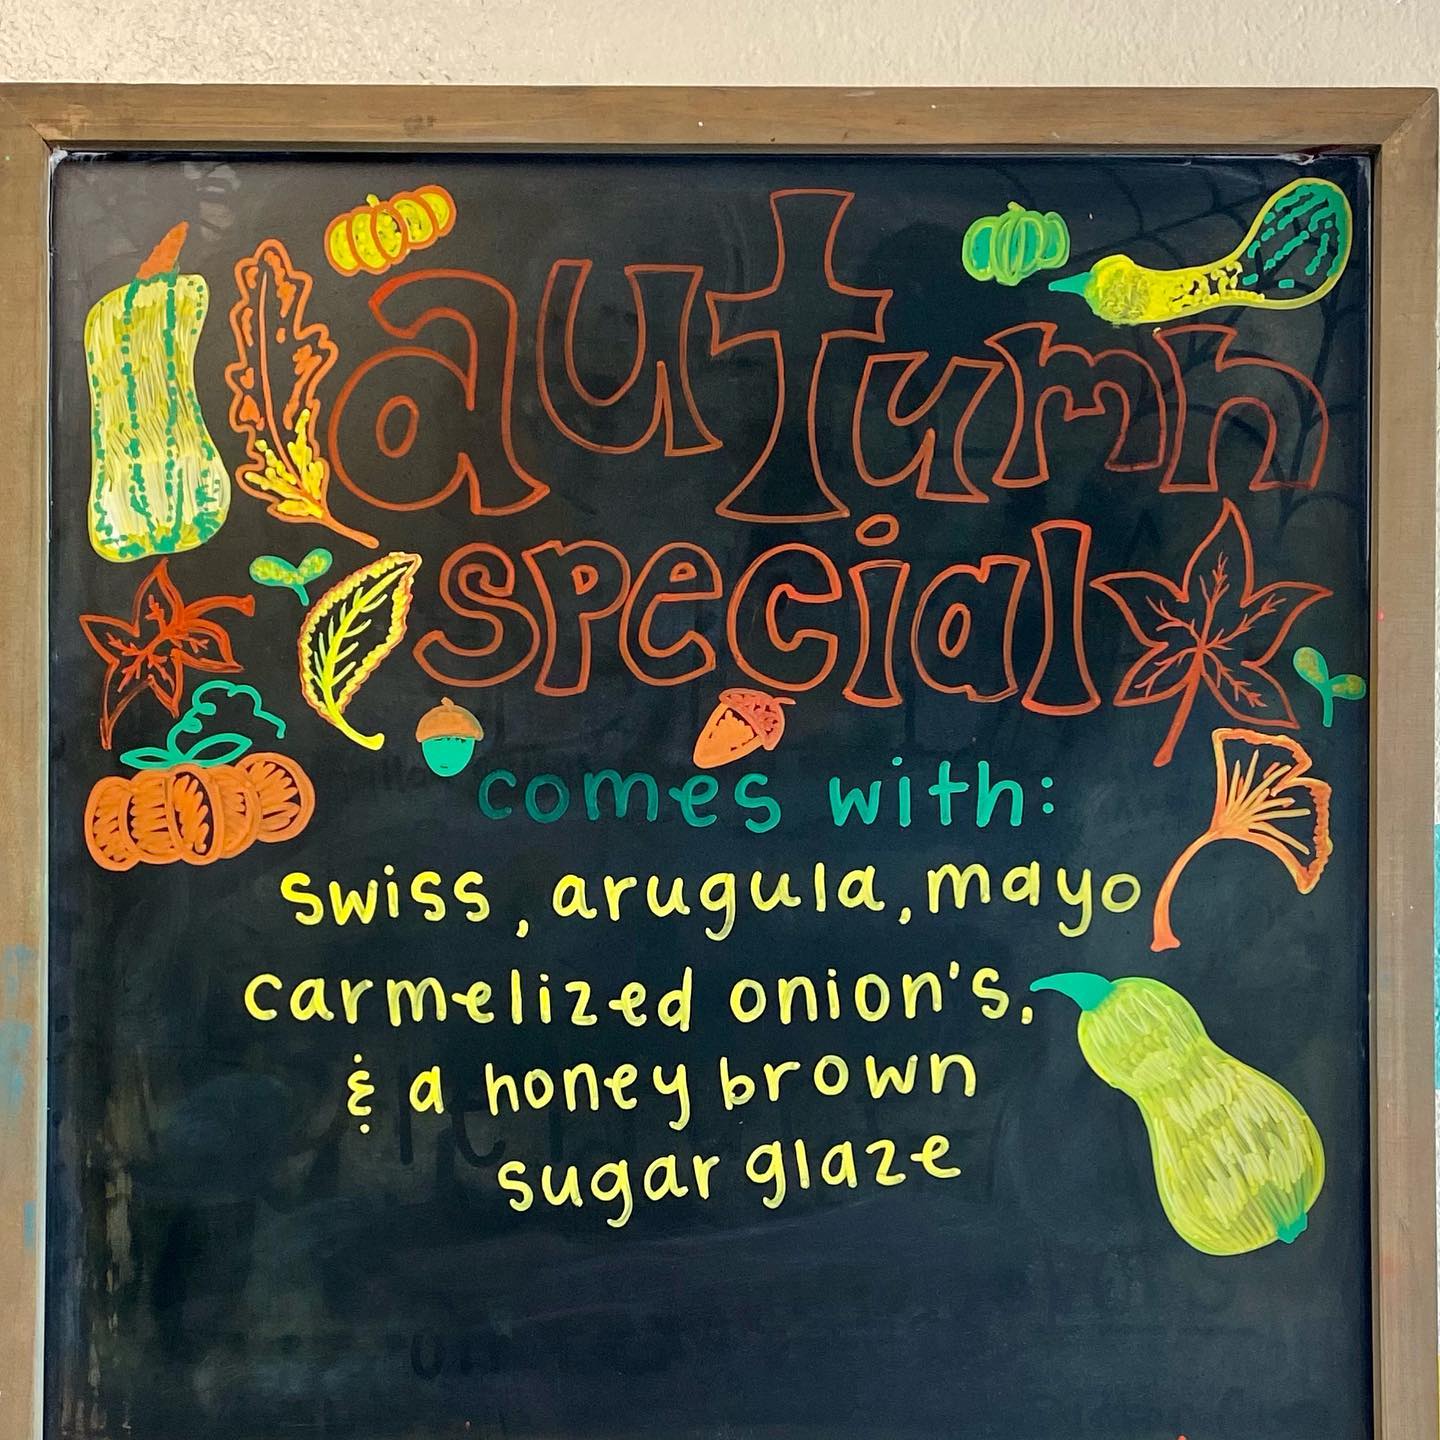 autumn
special
comes with:
swiss, arugula, mayo
carmelized onion's,
& a honey brown
sugar glaze